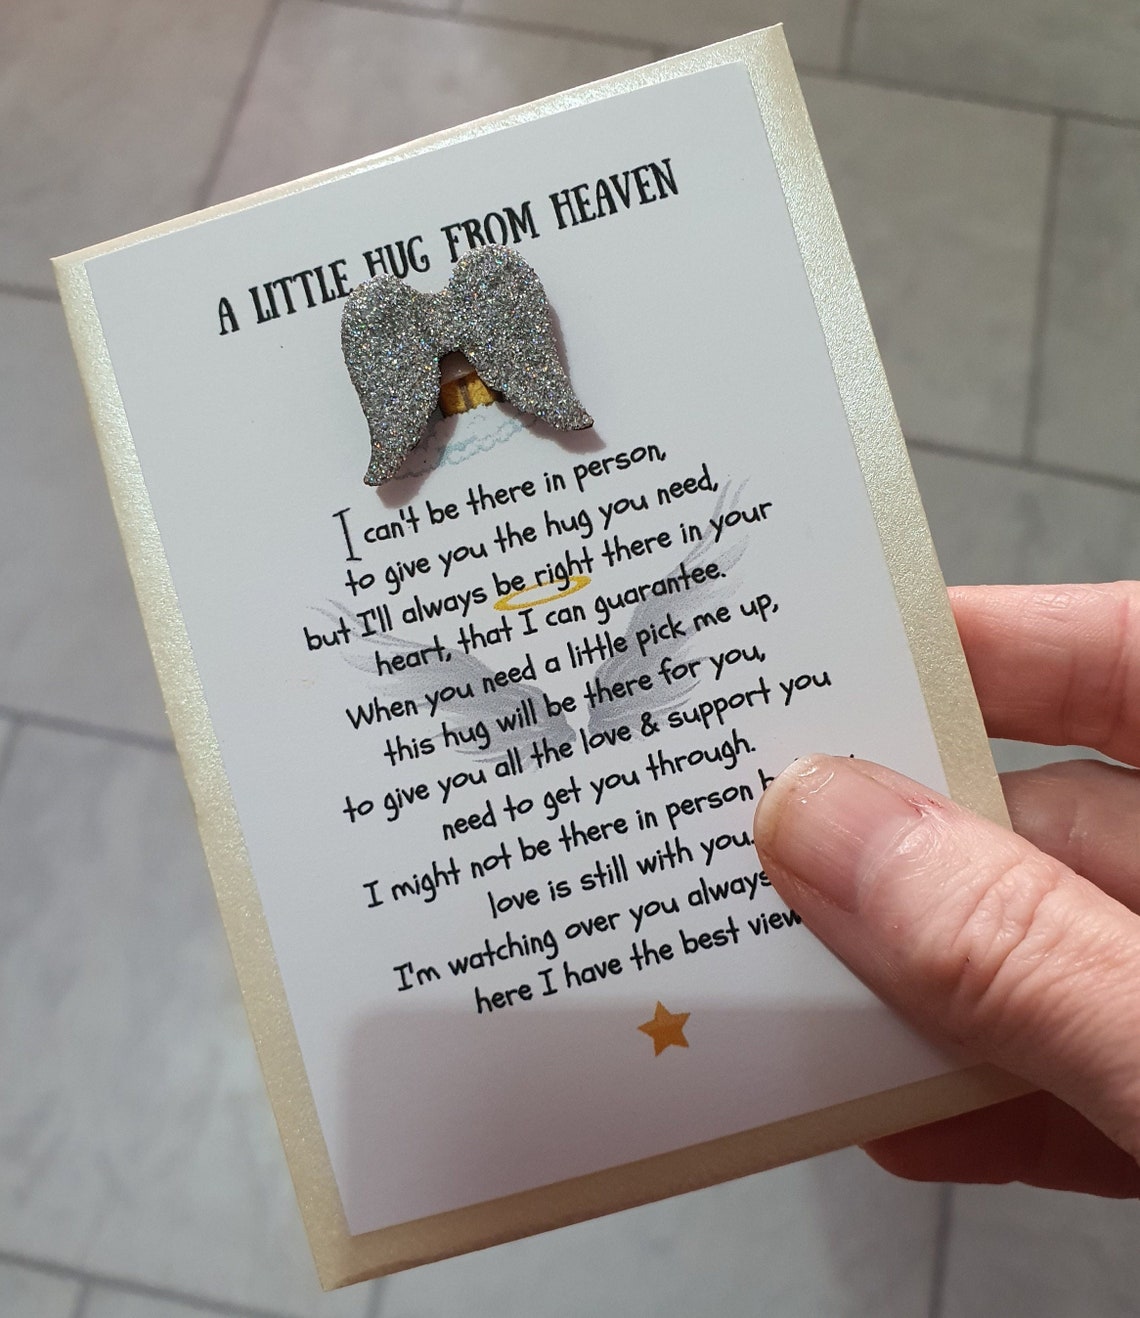 A LITTLE HUG FROM HEAVEN
I can't be there in person,
to give you the hug you need,
but I'll always be right there in your
heart, that I can guarantee.
When you need a little pick me up,
this hug will be there for you,
to give you all the love & support you
need to get you through.
I might not be there in person
love is still with you.
I'm watching over you always
here I have the best view